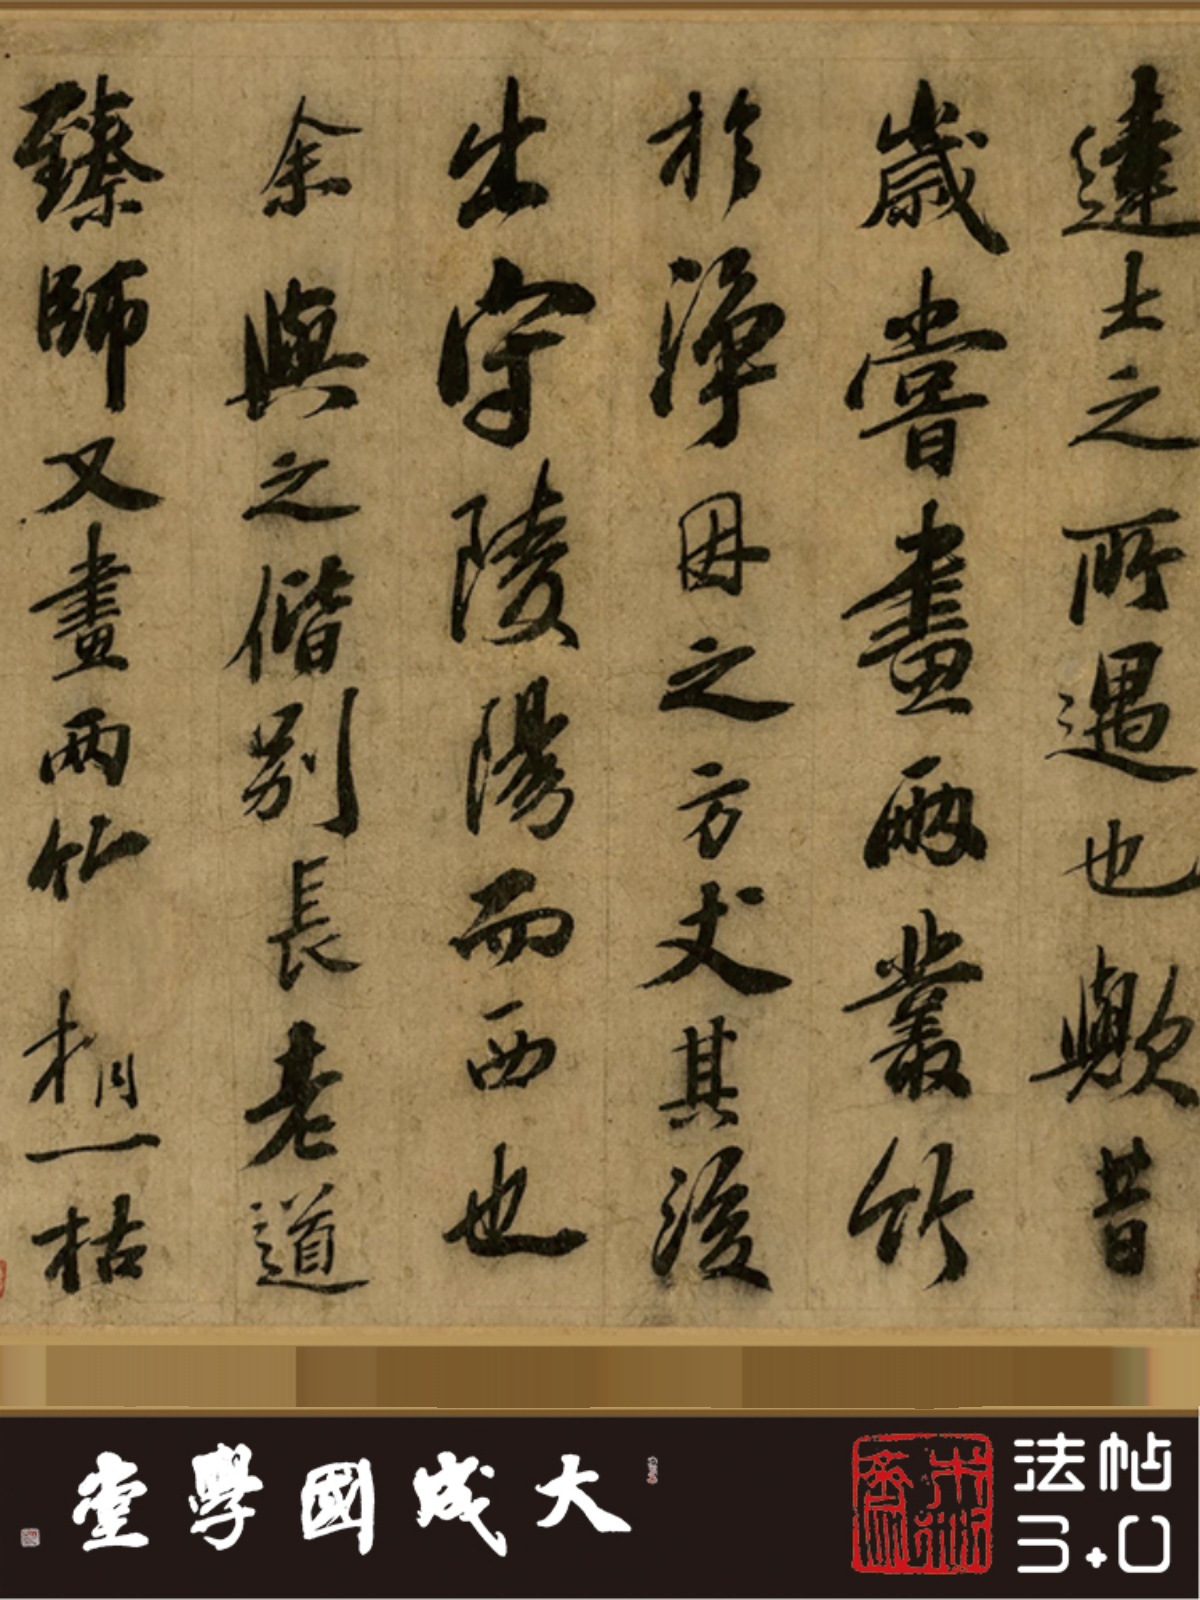 達士之所遇也歟昔
歲嘗畫兩叢竹
於淨因之方丈其後
出守陵陽而西也
余與之偕別長老道
臻師又畫兩竹梢一枯
大成國學堂
法帖
3.0